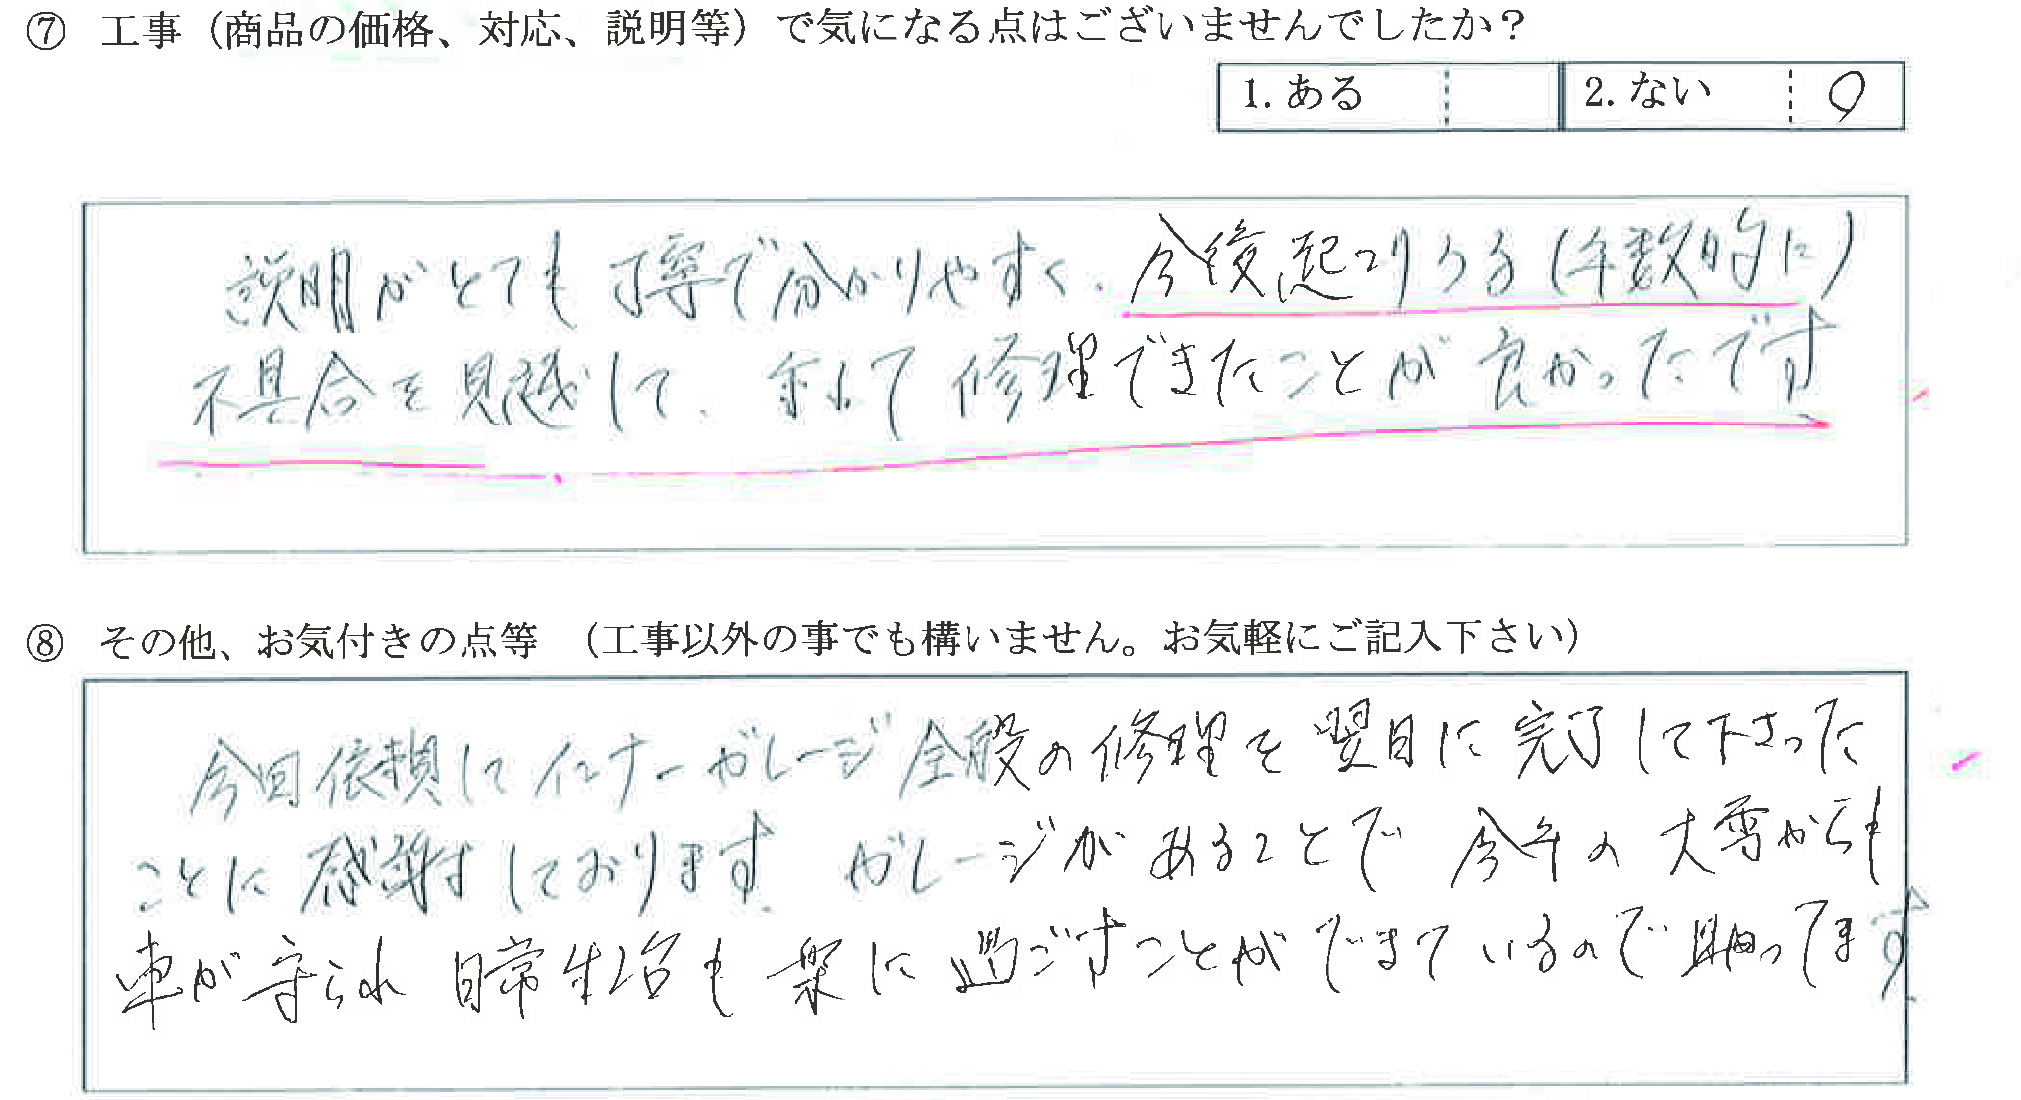 ⑦ 工事（商品の価格、対応、説明等）で気になる点はございませんでしたか？
1. ある 2. ない ○
説明がとても丁寧で分かりやすく、今後起こりうる(年数的に)
不具合を見越して、併せて修理できたことが良かったです
⑧ その他、お気付きの点等 （工事以外の事でも構いません。お気軽にご記入下さい）
今回依頼してインナーガレージ全般の修理を翌日に完了して下さった
ことに感謝しております。ガレージがあることで今年の大雪からも
車が守られ日常生活も楽に過ごすことができているので助かってます。